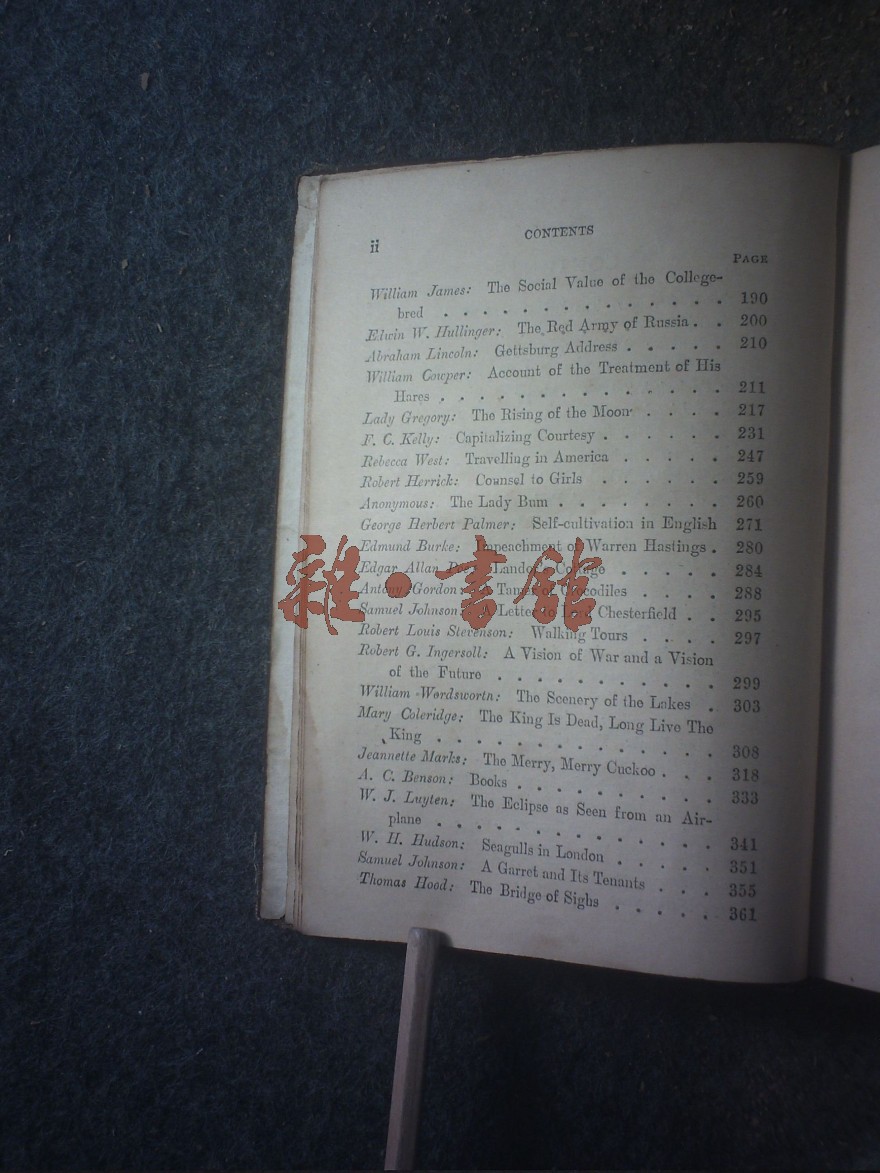 ii
CONTENTS
PAGE
William James: The Social Value of the College-
bred . . . . . . . . . . . . . . 190
Edwin W. Hullinger: The Red Army of Russia . . 200
Abraham Lincoln: Gettsburg Address . . . . . 210
William Cowper: Account of the Treatment of His
Hares . . . . . . . . . . . . . . 211
Lady Gregory: The Rising of the Moon . . . . 217
F. C. Kelly: Capitalizing Courtesy . . . . . . 231
Rebecca West: Travelling in America . . . . . 247
Robert Herrick: Counsel to Girls . . . . . . 259
Anonymous: The Lady Bum . . . . . . . . 260
George Herbert Palmer: Self-cultivation in English 271
Edmund Burke: Impeachment of Warren Hastings . 280
Edgar Allan Poe: Landor's Cottage . . . . . 284
Antony Gordon: A Tamer of Crocodiles . . . . 288
Samuel Johnson: A Letter to Lord Chesterfield . . 295
Robert Louis Stevenson: Walking Tours . . . . 297
Robert G. Ingersoll: A Vision of War and a Vision
of the Future . . . . . . . . . . . 299
William Wordsworth: The Scenery of the Lakes . 303
Mary Coleridge: The King Is Dead, Long Live The
King . . . . . . . . . . . . . 308
Jeannette Marks: The Merry, Merry Cuckoo . . . 318
A. C. Benson: Books . . . . . . . . . . 333
W. J. Luyten: The Eclipse as Seen from an Air-
plane . . . . . . . . . . . . . 341
W. H. Hudson: Seagulls in London . . . . . 351
Samuel Johnson: A Garret and Its Tenants . . . 355
Thomas Hood: The Bridge of Sighs . . . . . 361
雜·書館